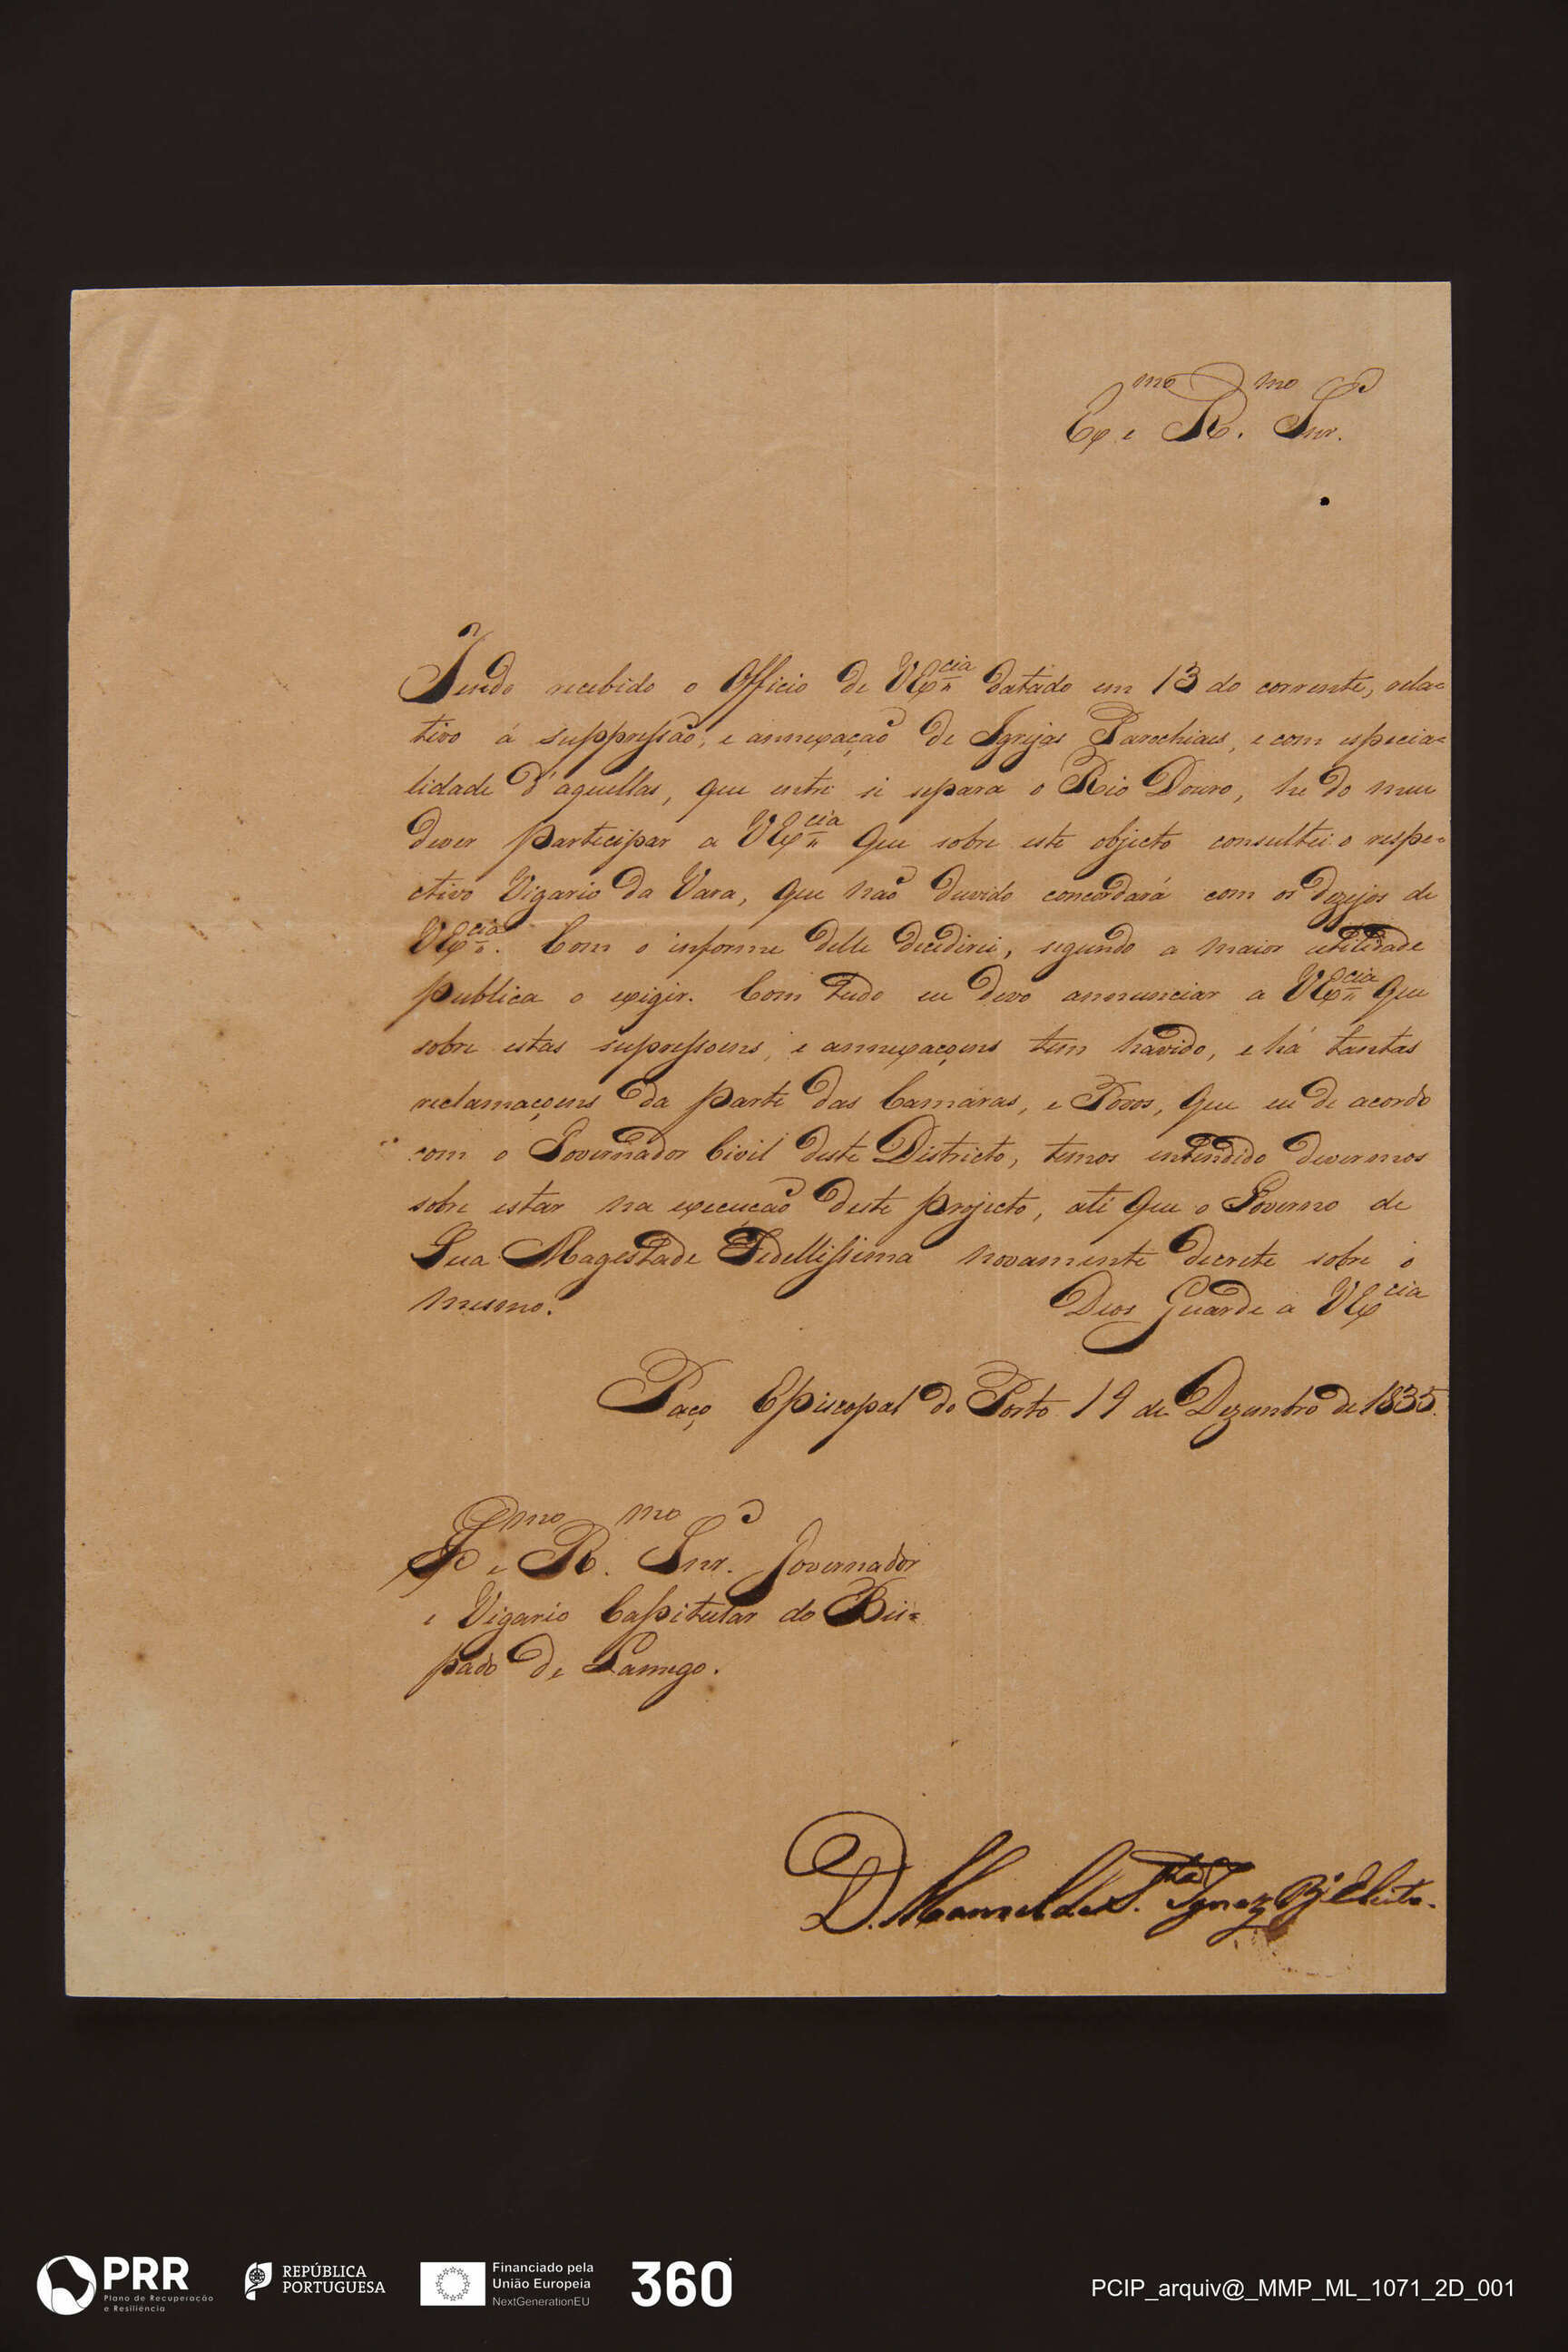 Ex.mo e R.mo Snr.
Tendo recebido o Officio de VEx.cia datado em 13 do corrente, rela=
tivo á suppressão, e annexação de Igrejas Parochiaes, e com especia=
lidade d'aquellas, que entre si separa o Rio Douro, he do meu
dever participar a VEx.cia que sobre este objecto consultei o respe=
ctivo Vigario da Vara, que não duvido concordará com os dezejos de
VEx.cia. Com o informe delle decidirei, segundo a maior utilidade
publica o exigir. Com tudo eu devo annunciar a VEx.cia que
sobre estas supressoens, e annexaçoens tem havido, e há tantas
reclamaçoens da parte das Camaras, e Povos, que eu de acordo
com o Governador Civil deste Districto, temos entendido devermos
sobre estar na execução deste projecto, até que o Governo de
Sua Magestade Fidellissima novamente decrete sobre o
mesmo. Deos Guarde a VEx.cia
Paço Episcopal do Porto 19 de Dezembro de 1835.
Ex.mo e R.mo Snr. Governador
e Vigario Capitular do Bis=
pado de Lamego.
D. Manoel de S.ta Ignez Bp.o Eleito.
PRR
Plano de Recuperação
e Resiliência
REPÚBLICA
PORTUGUESA
Financiado pela
União Europeia
NextGenerationEU
360
PCIP_arquiv@_MMP_ML_1071_2D_001